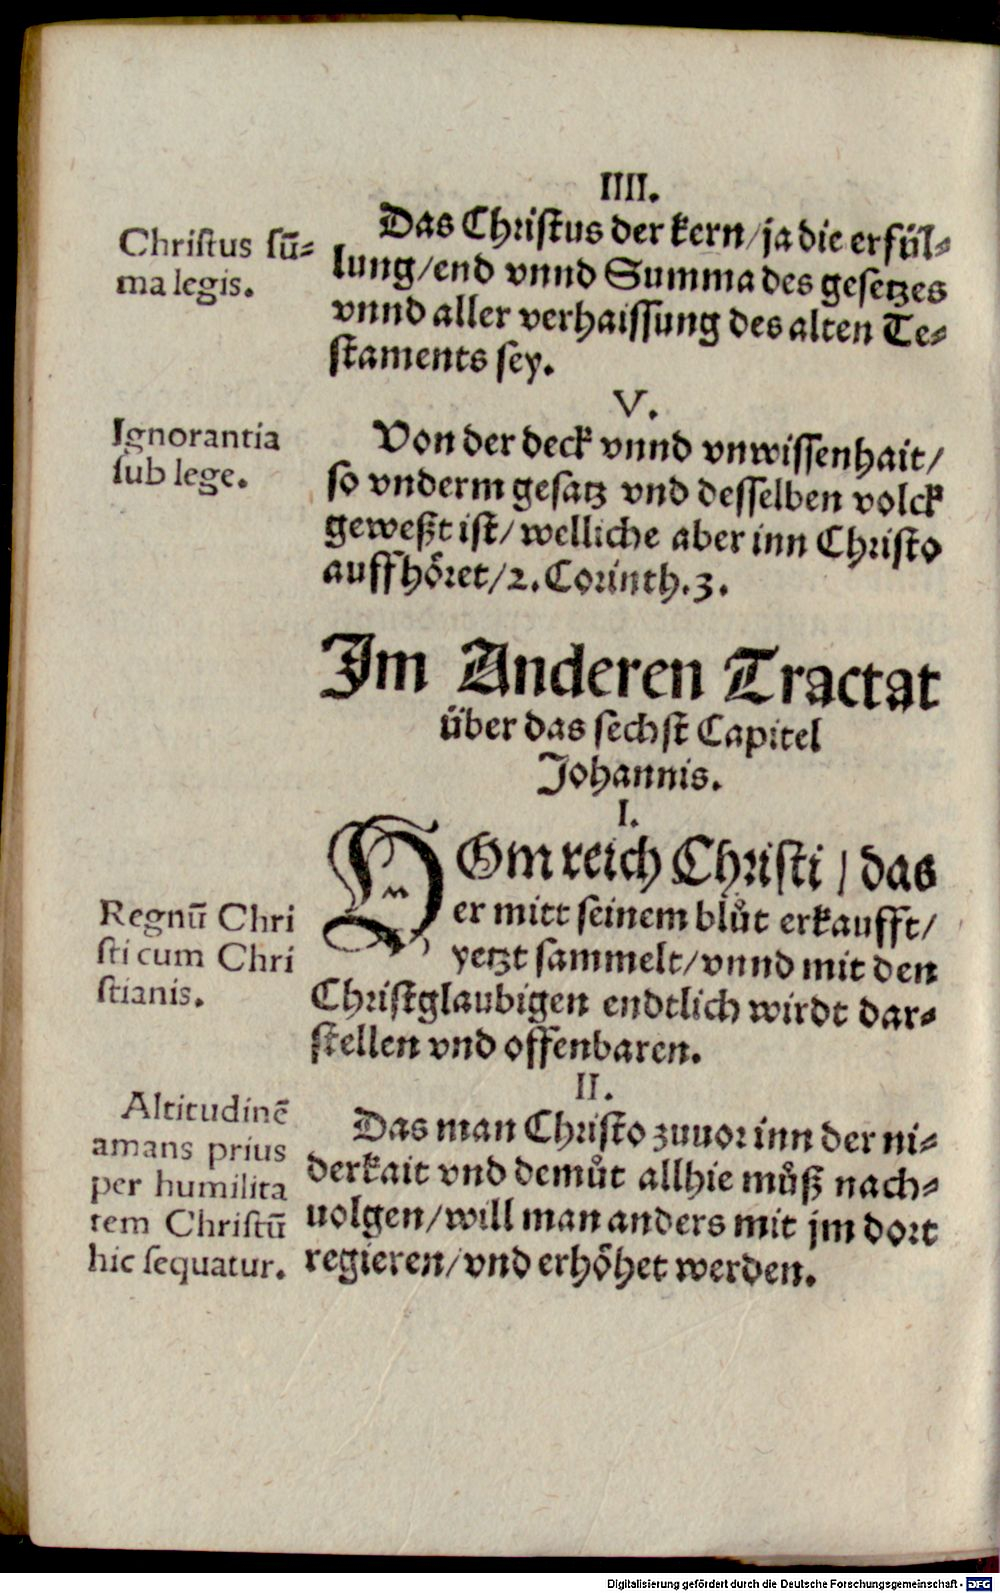 IIII.
Das Christus der kern/ja die erfül-
lung/end vnnd Summa des gesetzes
vnnd aller verhaissung des alten Te-
staments sey.
Christus sū-
ma legis.
V.
Von der deck vnnd vnwissenhait/
so vnderm gesatz vnd desselben volck
geweßt ist/welliche aber inn Christo
auffhöret/2.Corinth.3.
Ignorantia
sub lege.
Im Anderen Tractat
über das sechst Capitel
Johannis.
I.
VOm reich Christi/das
er mitt seinem blůt erkaufft/
yetzt sammelt/vnnd mit den
Christglaubigen endtlich wirdt dar-
stellen vnd offenbaren.
Regnū Chri
sti cum Chri
stianis.
II.
Das man Christo zuuor inn der ni-
derkait vnd demůt allhie můß nach-
uolgen/will man anders mit jm dort
regieren/vnd erhöhet werden.
Altitudinē
amans prius
per humilita
tem Christū
hic sequatur.
Digitalisierung gefördert durch die Deutsche Forschungsgemeinschaft - DFG